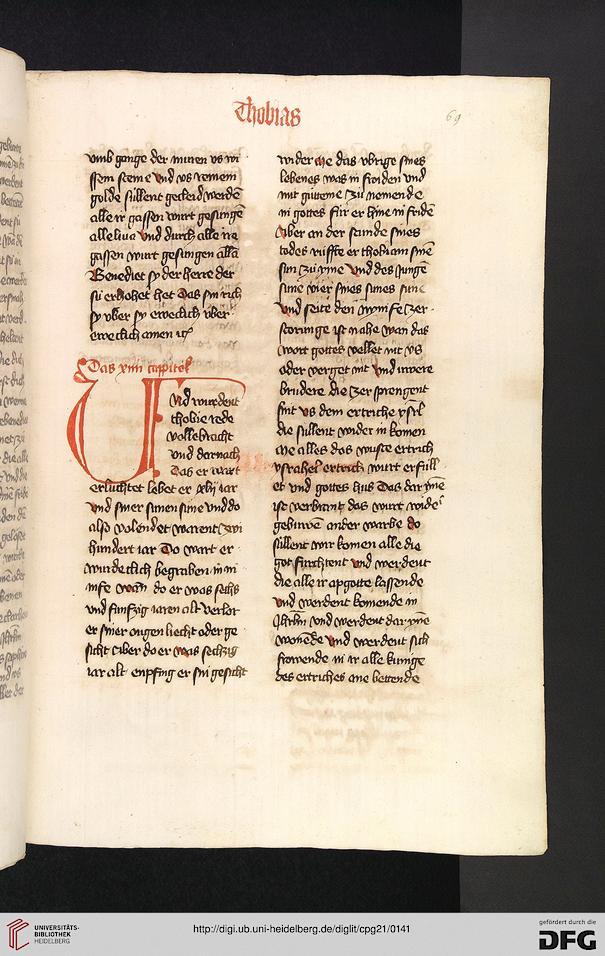 Thobias
69
vmb gange der muren vs wi
ssem steine vnd vs reinem
golde süllent gecleid werdē
alle ir gassen wurt gesungē
alleluia vnd durch alle ire
gassen wurt gesungen alla
Benediet sy der herre der
sü erhohet het das sin rich
sy vber sy eweclich vber
eweclich amen
Das xiiii cappitel
Vnd wurdent
thobie rede
vollebracht
vnd darnach
das er wart
erluchtet lebet er xlij iar
vnd siner sünen süne vnd do
also volendet warent zwi
hundert iar Do wart er
wurdeclich begraben in ni
nife wan do er was sechs
vnd fünfzig iaren alt verlor
er siner ougen liecht oder ge
sicht aber do er was sechzig
iar alt enpfing er sin gesicht
wider me das vbrige sines
lebenes was in froiden vnd
mit gutteme zu nemende
in gottes für er hine in fridē
Aber an der stunde sines
todes rüffte er thobiam sinē
sun zu yme vnd des iungē
süne sines sunes sune
vnd seite den nynife zer
storunge ist nahe wan das
wort gottes vellet nit vs
oder verget nit vnd vwere
brüdere die zersprengent
sint vs dem ertriche ysrl
die süllent wider in komen
me alles das wuste ertrich
ysrahel ertrich wurt erfüll
et vnd gottes hus das dar yne
ist verbrant das wurt wide
gebuwē ander warbe do
süllent wir komen alle die
got fürchtent vnd werdent
die alle ir apgotte lassende
vnd werdent komende in
Jhrlm vnd werdent dar yne
wonēde vnd werdent sich
frowende in ir alle künige
des ertriches ane bettende
UNIVERSITÄTS-
BIBLIOTHEK
HEIDELBERG
http://digi.ub.uni-heidelberg.de/diglit/cpg21/0141
gefördert durch die
DFG